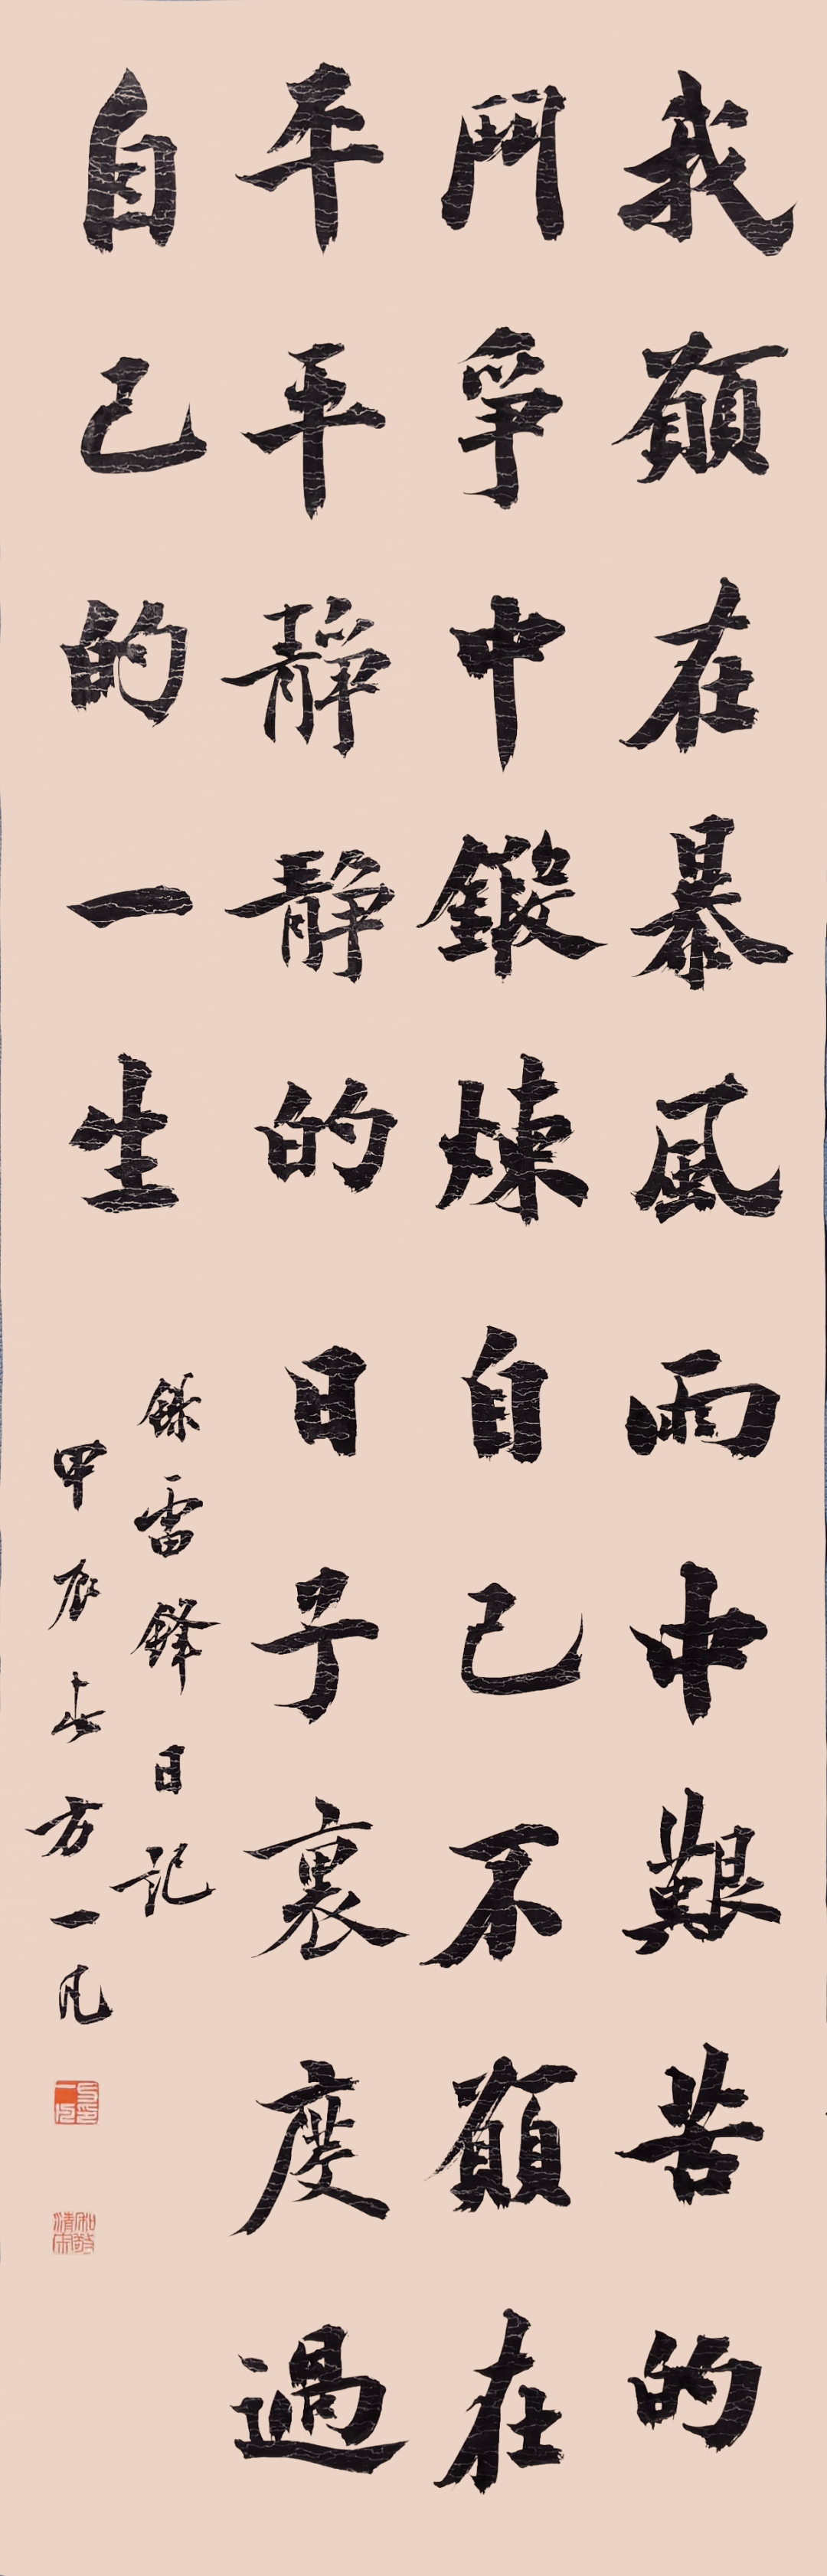 我願在暴風雨中艱苦的
鬥爭中鍛煉自己不願在
平平靜靜的日子裏度過
自己的一生
錄雷鋒日記
甲辰春方一凡
方一凡印
和敬清寂